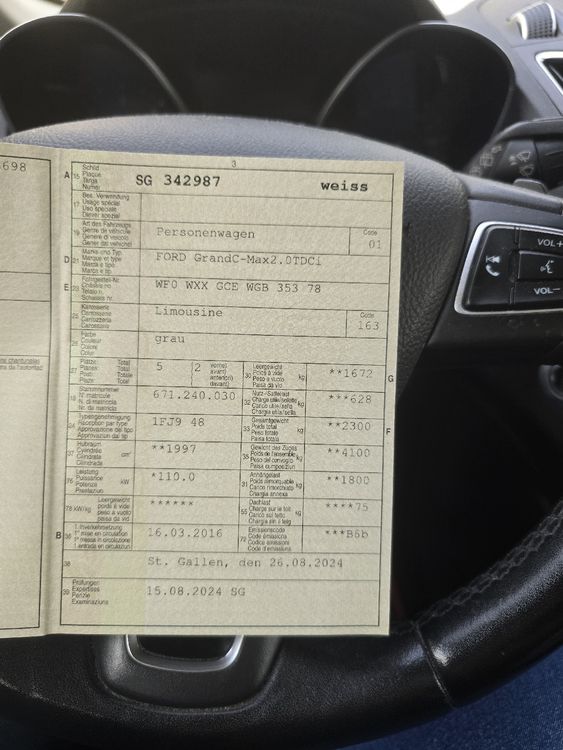 698
3
A 15 Schild Plaque Targa Numer SG 342987 weiss
17 Bes. Verwendung Usage spécial Uso speciale Diever spezial
19 Art des Fahrzeugs Genre de véhicule Genere di veicolo Gener dal vehichel Personenwagen Code 01
D 21 Marke und Typ Marque et type Marca e tipo Marca e tip FORD GrandC-Max2.0TDCi
E 23 Fahrgestell-Nr. Châssis no Telaio n. Schassis nr. WF0 WXX GCE WGB 353 78
25 Karosserie Carrosserie Carrozzeria Carossaria Limousine Code 163
26 Farbe Couleur Colore Colur grau
27 Plätze: Total Places: Total Posti: Totale Plazs: Total 5 2 vorne) avant) anteriori) davant) 30 Leergewicht Poids à vide Peso a vuoto Paisa da vid kg **1672 G
18 Stammnummer N° matricule N. di matricola Nr. da matricla 671.240.030 32 Nutz-/Sattellast Charge utile/sellette Carico utile/sella Chargia utila/sella kg ***628
24 Typengenehmigung Réception par type Approvazione del tipo Approvaziun dal tip 1FJ9 48 33 Gesamtgewicht Poids total Peso totale Paisa totala kg **2300 F
37 Hubraum Cylindrée Cilindrata Cilindrada cm³ **1997 35 Gewicht des Zuges Poids de l'ensemble Peso del convoglio Paisa cumposiziun kg **4100
76 Leistung Puissance Potenza Prestaziun kW *110.0 31 Anhängelast Poids remorquable Carico rimorchiato Chargia annexa kg **1800
78 kW/kg Leergewicht poids à vide peso a vuoto paisa da vid ****** 55 Dachlast Charge sur le toit Carico sul tetto Chargia sin il tetg kg ****75
B 36 1. Inverkehrsetzung 1re mise en circulation 1a messa in circolazione 1. entrada en circulaziun 16.03.2016 72 Emissionscode Code émissions Codice emissioni Code d'emissiuns ***B6b
38 St. Gallen, den 26.08.2024
39 Prüfungen Expertises Perizie Examinaziuns 15.08.2024 SG
VOL+
VOL−